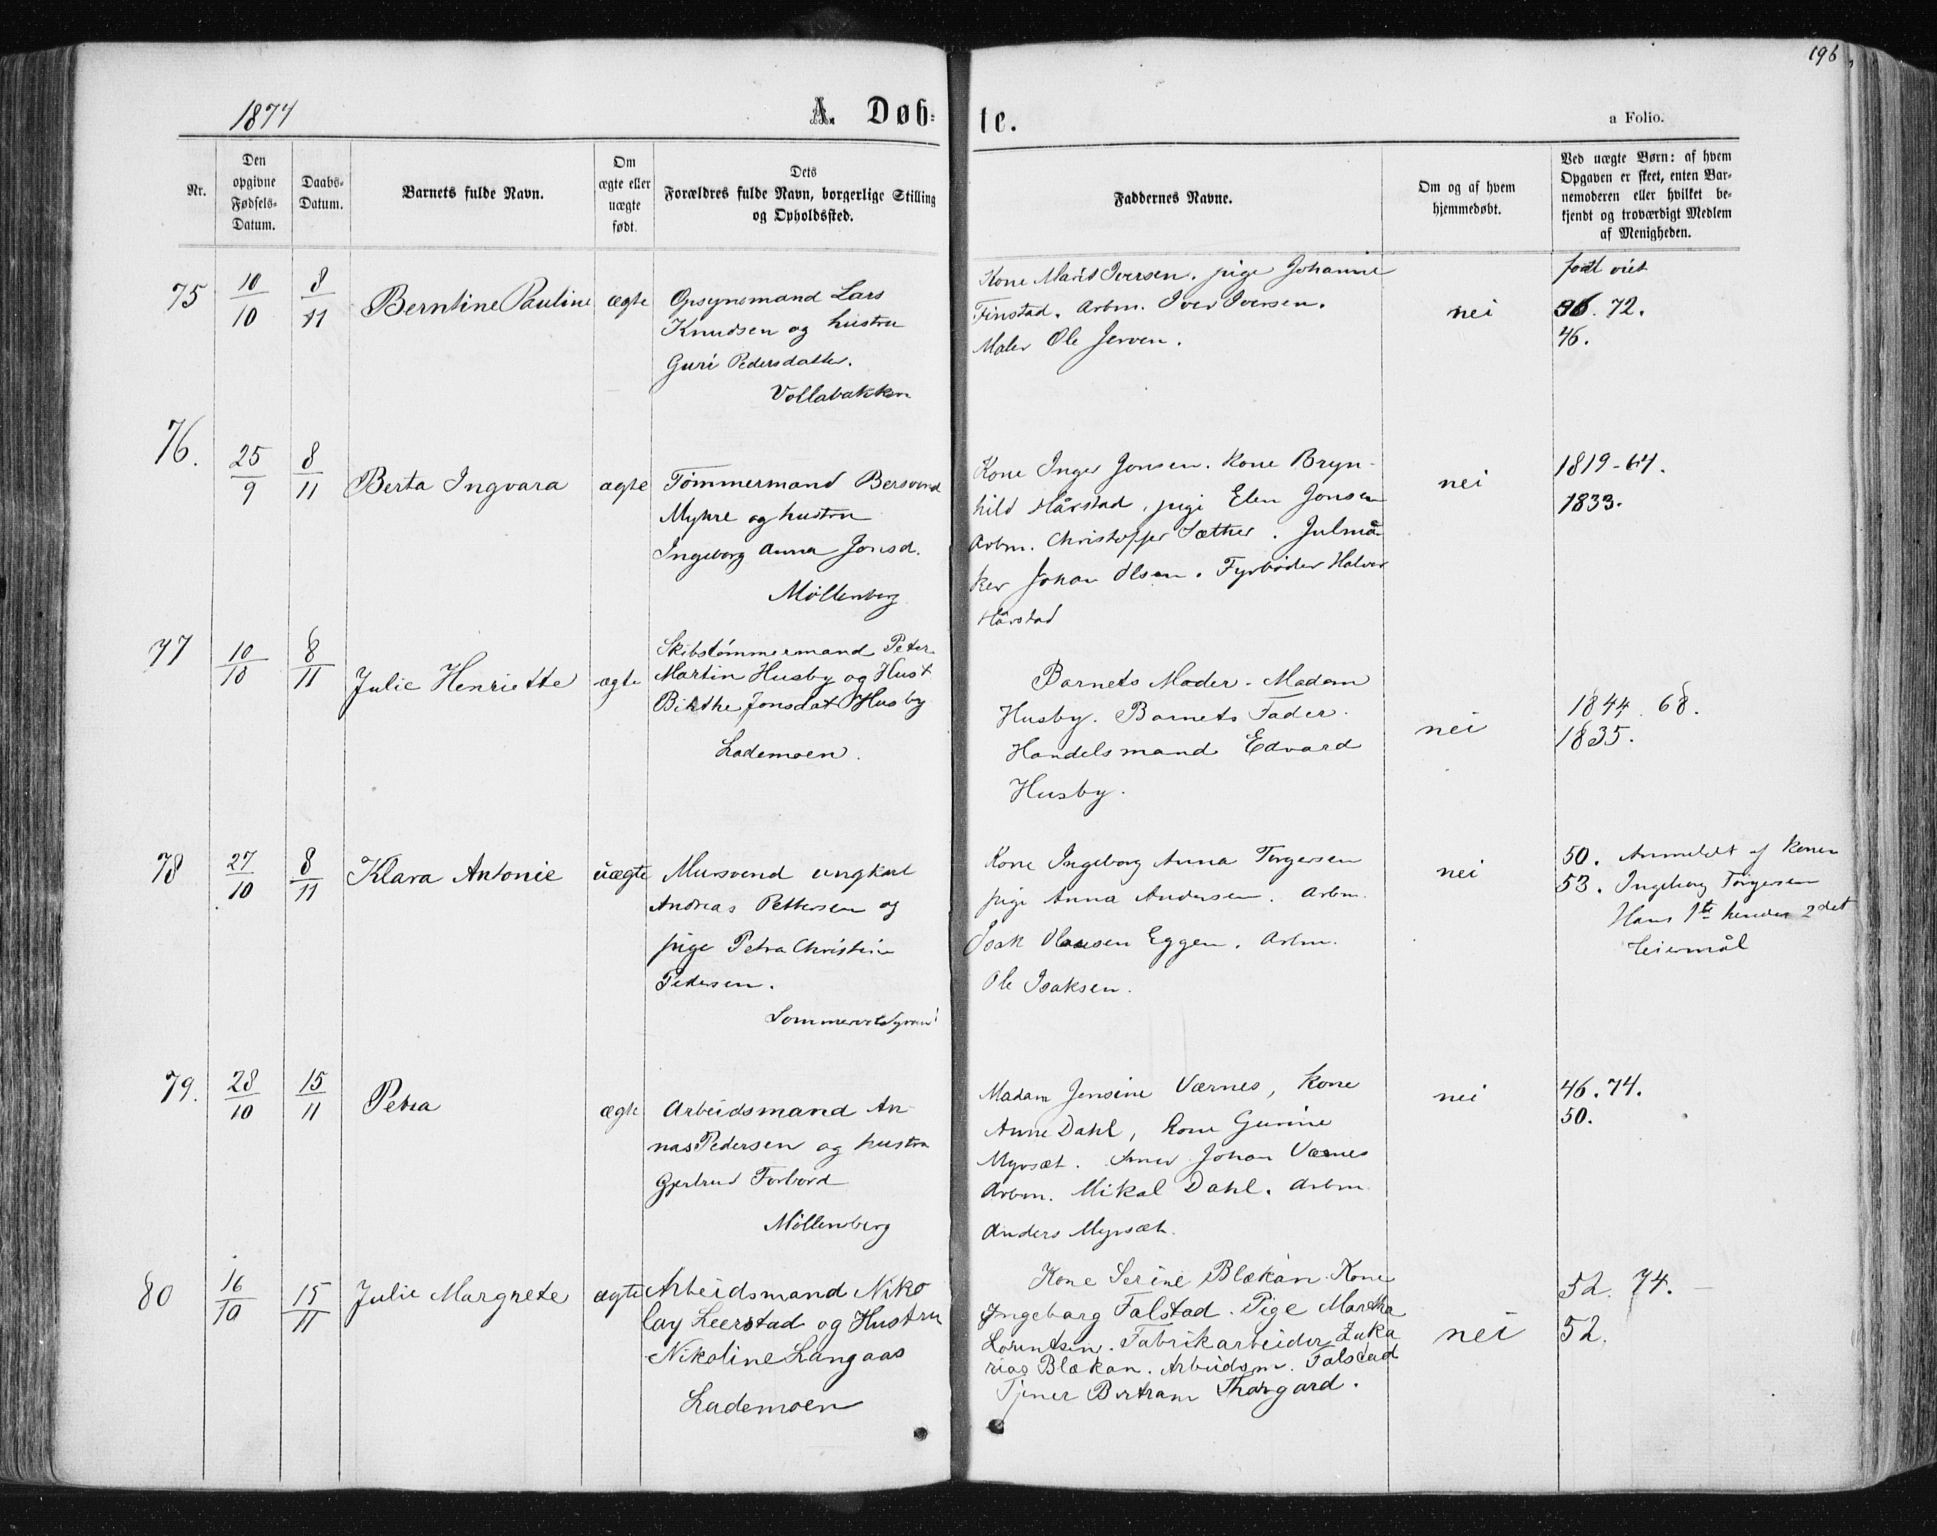 196
1874
A. Døb-
te.
a Folio.
Nr.
Den
opgivne
Fødsels-
Datum.
Daabs-
Datum.
Barnets fulde Navn.
Om
ægte eller
uægte
født.
Dets
Forældres fulde Navn, borgerlige Stilling
og Opholdssted.
Faddernes Navne.
Om og af hvem
hjemmedøbt.
Ved uægte Børn: af hvem
Opgaven er skeet, enten Bar-
nemoderen eller hvilket be-
kjendt og troværdigt Medlem
af Menigheden.
75
10/10
8/11
Berntine Pauline
ægte
Opsynsmand Lars
Knudsen og hustru
Guri Pedersdatter.
Vollabakken
Kone Marit Iversen. pige Johanne
Finstad. Arbm. Iver Iversen.
Maler Ole Jerven.
nei
født viet
36. 72.
46.
76.
25/9
8/11
Berta Ingvara
ægte
Tømmermand Bersvend
Myhre og hustru
Ingeborg Anna Jonsd.
Møllenberg
Kone Inger Jonsen. Kone Bryn-
hild Hårstad, pige Elen Jonsen
Arbm. Christoffer Sæther. Julmå-
ker Johan Olsen. Fyrbøder Halvor
Hårstad
nei
1819-64.
1833.
77
10/10
8/11
Julie Henriette
ægte
Skibstømmermand Peter
Martin Husby og Hust
Birthe Jonsdat Husby
Lademoen.
Barnets Moder. Madam
Husby. Barnets Fader.
Handelsmand Edvard
Husby.
nei
1844. 68.
1835.
78
27/10
8/11
Klara Antonie
uægte
Mursvend ungkarl
Andreas Pettersen og
pige Petra Christine
Pedersen.
Kone Ingeborg Anna Torgersen
pige Anna Andersen. Arbm.
Isak Olausen Eggen. Arbm.
Ole Isaksen.
nei
50. Anmeldt af Konen
53. Ingeborg Torgersen
Hans 1te hendes 2det
Leiermål
79.
28/10
15/11
Petra
ægte
Arbeidsmand An-
nas Pedersen og hustru
Gjertrud Forbord
Møllenberg
Madam Jensine Værnes, Kone
Anne Dahl, Kone Gurine
Myrsæt. Johan Værnes
Arbm. Mikal Dahl. Arbm
Anders Myrsæt.
nei
46. 74.
50.
80
16/10
15/11
Julie Margrete
ægte
Arbeidsmand Niko
lay Leerstad og Hustru
Nikoline Langaas
Lademoen
Kone Serine Blækan. Kone
Ingeborg Falstad. Pige Martha
Lorentsen. Fabrikarbeider Zaka
rias Blækan. Arbeidsm. Falstad
Tjener Bertram Thorgard.
nei
52. 74.
52.